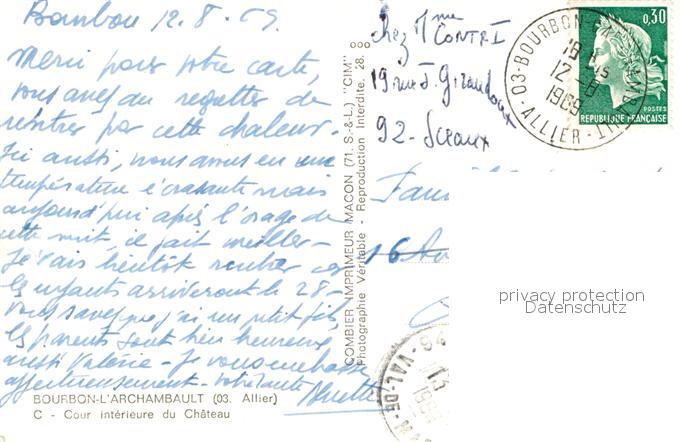 Bourbon 12.8.69
Merci pour votre carte,
vous avez du regretter de
rentrer par cette chaleur.
Ici aussi, nous avons eu une
température écrasante mais
aujourd'hui après l'orage de
cette nuit, il fait meilleur-
Je vais bientôt rentrer car
les enfants arriveront le 28-
Vous savez que j'ai un petit fils,
les parents sont bien heureux
aussi Valérie - Je vous embrasse
affectueusement - votre tante
BOURBON-L'ARCHAMBAULT (03. Allier)
C - Cour intérieure du Château
COMBIER IMPRIMEUR MACON (71 S.-&-L.) "CIM"
Photographie Véritable - Reproduction Interdite. 28.
chez Mme CONTRI
19 rue J. Giraudoux
92 - Sceaux
16 Av
03-BOURBON-L'ARCHAMBAULT
12-8
1969
ALLIER
0,30
POSTES
REPUBLIQUE FRANÇAISE
94
13
VAL-DE-MA
privacy protection
Datenschutz